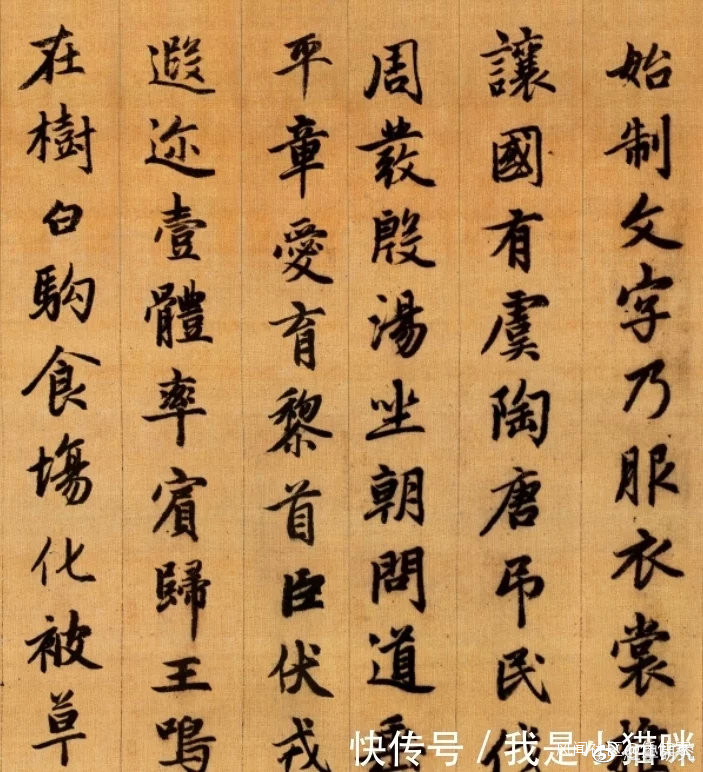 始制文字乃服衣裳
讓國有虞陶唐吊民伐
周發殷湯坐朝問道垂
平章愛育黎首臣伏戎
遐迩壹體率賓歸王鳴
在樹白駒食塲化被草
快传号 / 我是小猫咪